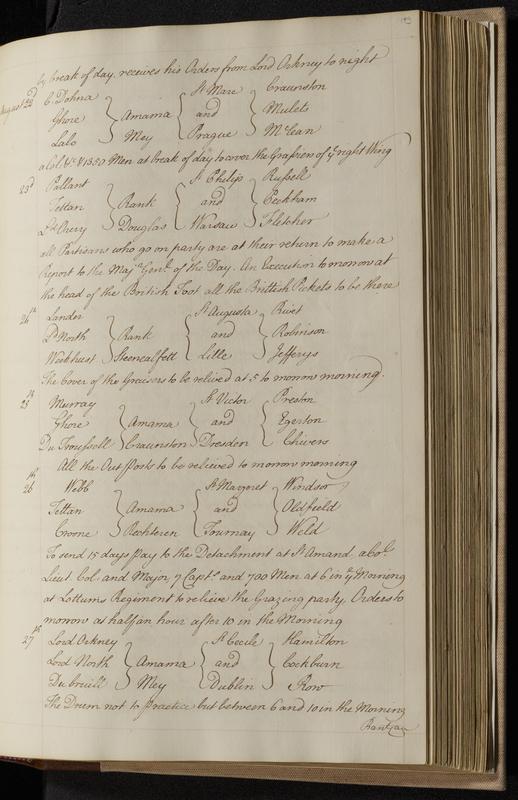 by break of day, receives his Orders from Lord Orkney to night
August 22d C. Dohna } { St Mare } Craunston
Ghore } Amama { and } Mulets
Lalo } Mey { Prague } McLean
a Col. &c & 1350 Men at break of day to cover the Grasiers of ye right Wing
23d Pallant } { St Philip } Russell
Tettau } Rank { and } Peckham
Ld Thery } Douglas { Warsaw } Fletcher
all Partisans who go on party are at their return to make a
report to the Majr Genll of the Day. An Execution to morrow at
the head of the British Foot all the Brittish Pickets to be there
24th Lander } { St Augusta } Rivet
Ld North } Rank { and } Robinson
Weekhust } Steenealfett { Lille } Jefferys
The Cover of the Graisers to be relived at 5 to morrow morning.
25th Murray } { St Victor } Preston
Ghore } Amama { and } Egerton
Du Troussell } Craunston { Dresden } Chivers
All the Out Posts to be relieved to morrow morning
26th Webb } { St Margret } Windsor
Tettau } Amama { and } Oldfield
Croone } Rechteren { Tournay } Weld
To send 15 days Pay to the Detachment at St Amand, a Coll
Lieut. Col. and Major, 7 Capts. and 700 Men at 6 in ye Morning
at Lottums Regiment to relieve the Grazing party, Orders to
morrow as half an hour after 10 in the Morning
27th Lord Orkney } { St Cecile } Hamilton
Lord North } Amama { and } Cockburn
Dubruill } Mey { Dublin } Row
The Drum not to practice but between 6 and 10 in the Morning
Rantzau